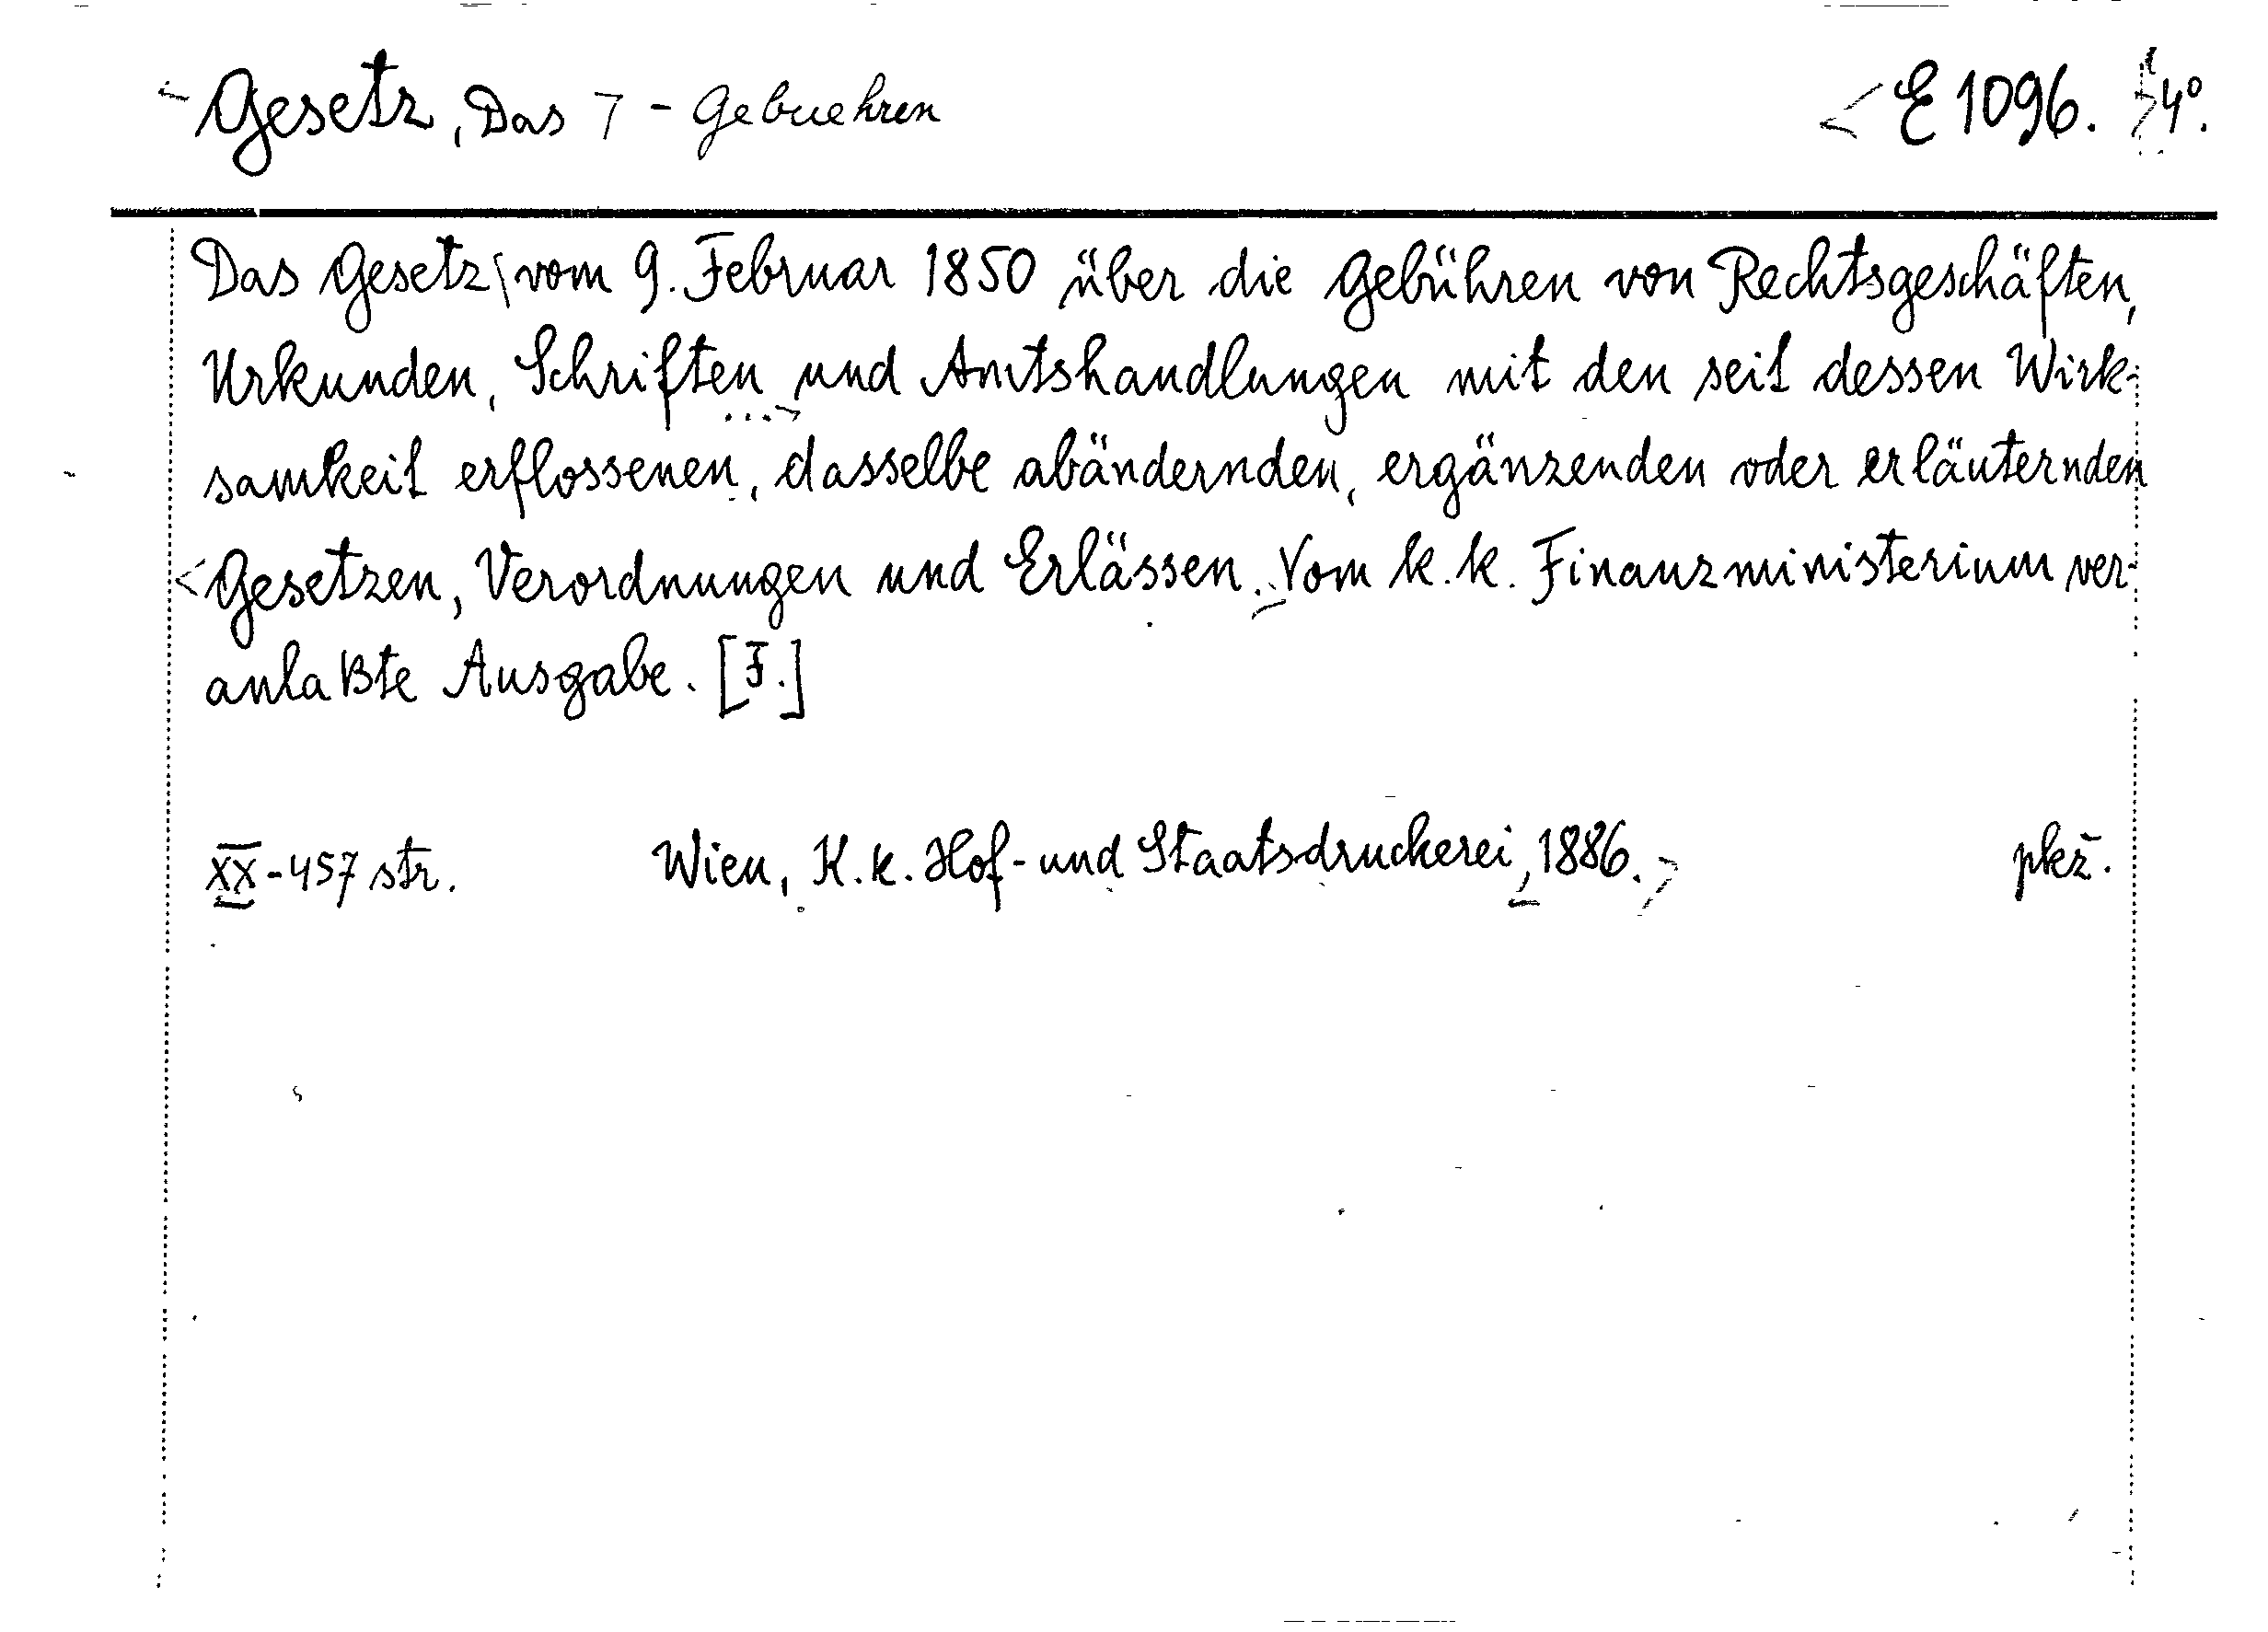 Gesetz, Das 7 - Gebuehren
E 1096. 4°.
Das Gesetz vom 9. Februar 1850 über die Gebühren von Rechtsgeschäften,
Urkunden, Schriften und Amtshandlungen mit den seit dessen Wirk-
samkeit erflossenen, dasselbe abändernden, ergänzenden oder erläuternden
Gesetzen, Verordnungen und Erlässen. Vom k.k. Finanzministerium ver-
anlaßte Ausgabe. [F.]
XX-457 str. Wien, K.k. Hof- und Staatsdruckerei, 1886. pkž.